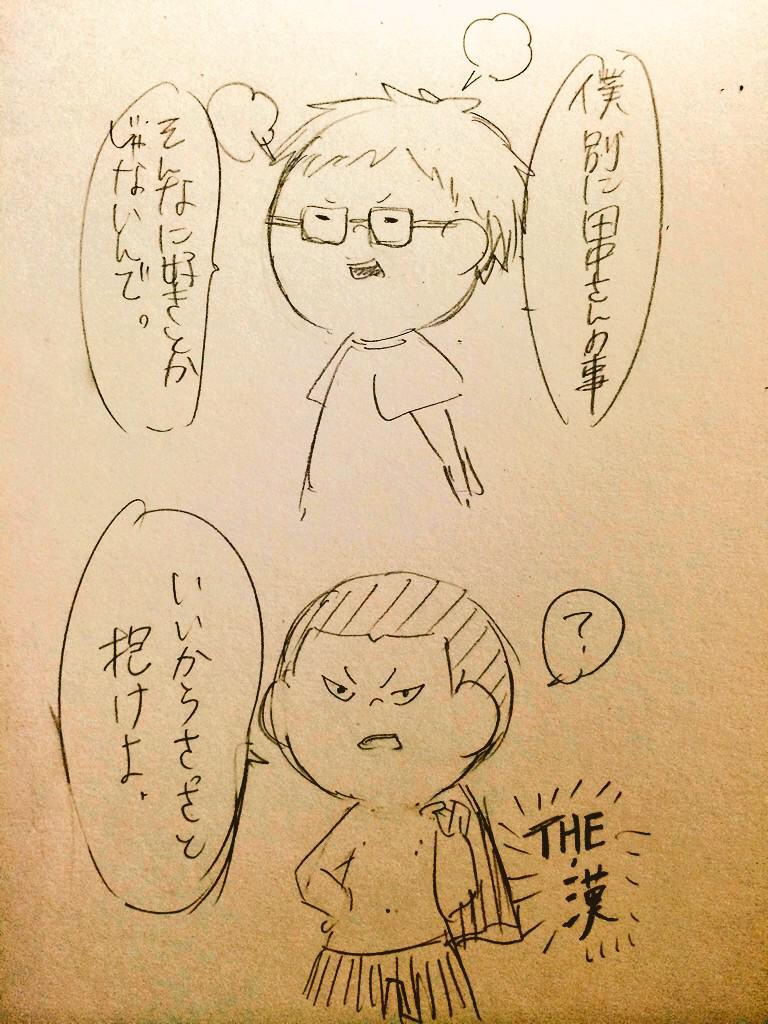 僕別に田中さんの事
そんなに好きとか
じゃないんで。
?
いいからさっさと
抱けよ.
THE・
漢